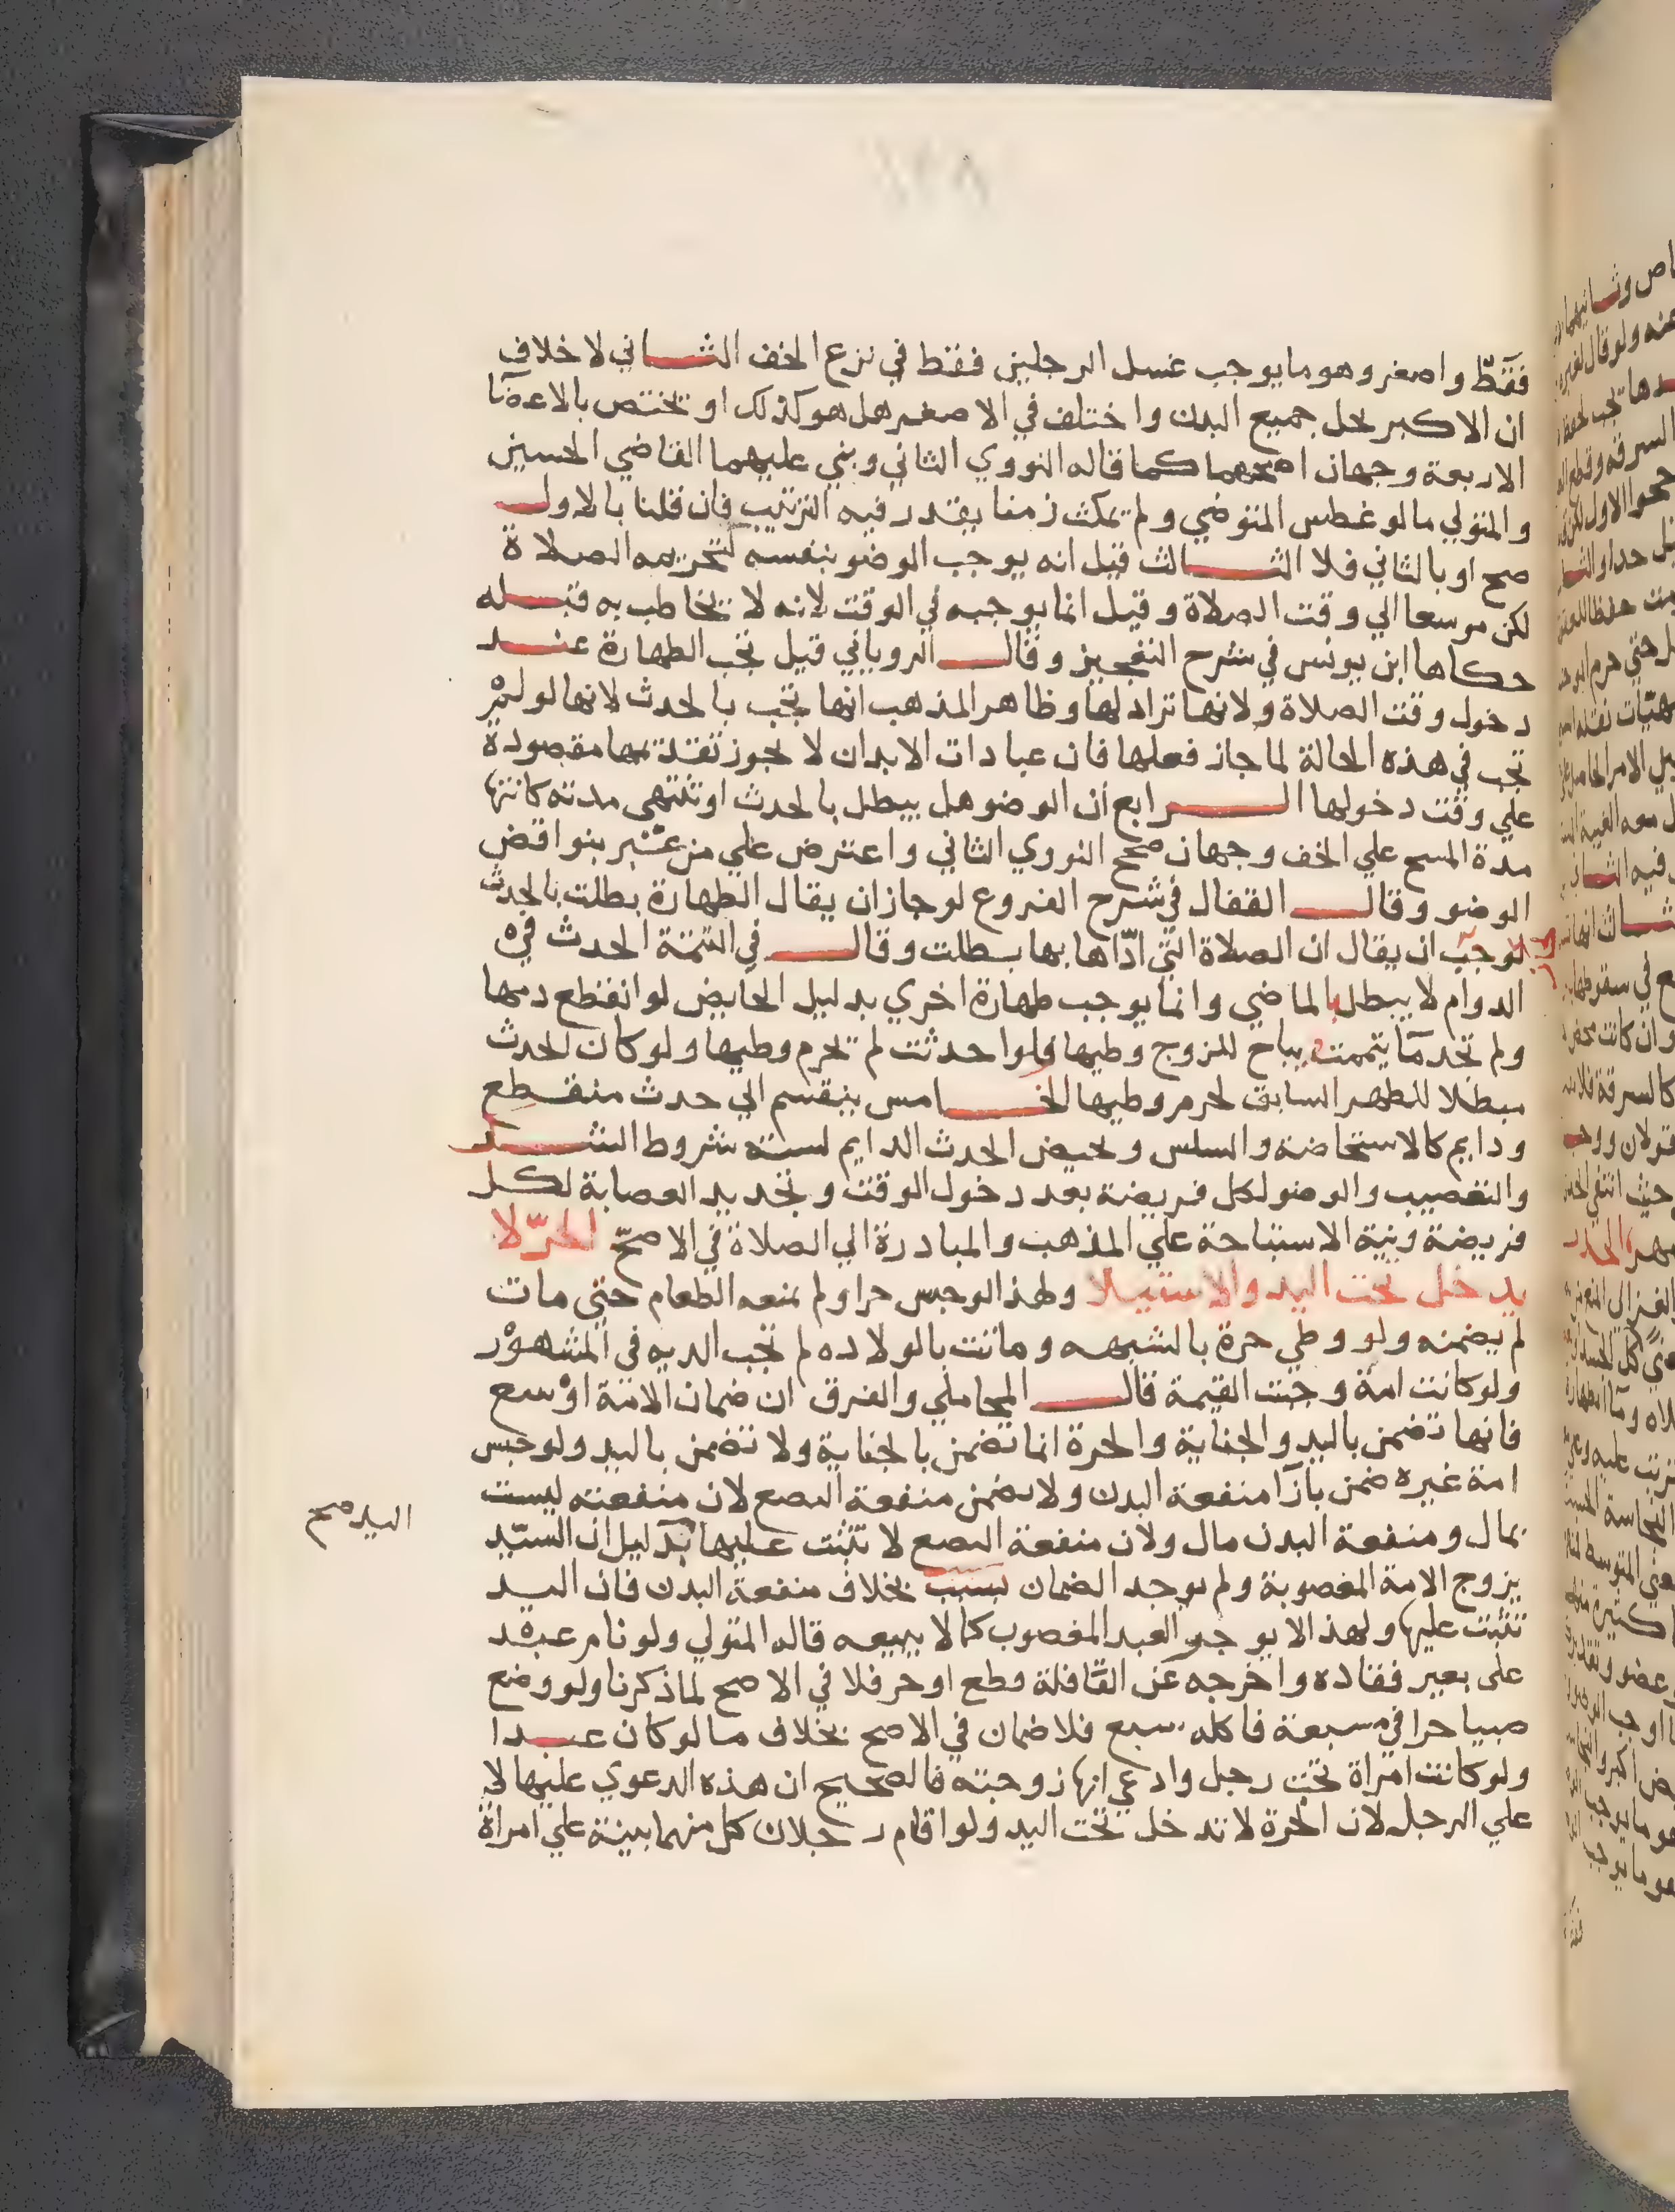 فقط واصغر وهو ما يوجب غسل الرجلين فقط في نزع الخف الثاني لا خلاف
ان الاكبر يحل جميع البدن واختلف في الاصغر هل هو كذلك او يختص بالاعضآ
الاربعة وجهان اصحهما كما قاله النووي الثاني وبني عليهما القاضي الحسين
والمتولي ما لو غطس المتوضي ولم يمكث زمنا يقدر فيه الترتيب فان قلنا بالاول
صح او بالثاني فلا الثالث قيل انه يوجب الوضو بنفسه لتحريمه الصلاة
لكن موسعا الي وقت الصلاة وقيل انما يوجبه في الوقت لانه لا يخاطب به قبله
حكاها ابن يونس في شرح التعجيز وقال الروياني قيل تجب الطهارة عند
دخول وقت الصلاة ولانها تراد لها وظاهر المذهب انها تجب بالحدث لانها لو لم
تجب في هذه الحالة لما جاز فعلها فان عبادات الابدان لا يجوز تقدتمها مقصودة
علي وقت دخولها الرابع ان الوضو هل يبطل بالحدث او تنتهي مدته كانتها
مدة المسح علي الخف وجهان صحح النووي الثاني واعترض علي من عبّر بنواقض
الوضو وقال القفال في شرح الفروع لو جاز ان يقال الطهارة بطلت بالحدث
لوجب ان يقال ان الصلاة التي ادّاها بها بطلت وقال في التتمة الحدث في
الدوام لا يبطل بالماضي وانما يوجب طهارة اخري بدليل الحايض لو انقطع دمها
ولم تجد مآ يتممت يباح للزوج وطيها ولو احدثت لم تحرم وطيها ولو كان الحدث
مبطلا للطهر السابق لحرم وطيها الخامس ينقسم الي حدث منقطع
ودايم كالاستحاضة والسلس ويحيض الحدث الدايم لسته شروط الشد
والتعصيب والوضو لكل فريضة بعد دخول الوقت وتجديد العصابة لكل
فريضة ونية الاستباحة علي المذهب والمبادرة الي الصلاة في الاصحّ الحرّ لا
يدخل تحت اليد والاستيلا ولهذا لو حبس حرا ولم يمنعه الطعام حتي مات
لم يضمنه ولو وطي حرة بالشبهه وماتت بالولاده لم تجب الديه في المشهور
ولو كانت امة وجبت القيمة قال المحاملي والفرق ان ضمان الامة اوسع
فانها تضمن باليد والجناية والحرة انما تضمن بالجناية ولا تضمن باليد ولو حبس
امة غيره ضمن بازآ منفعة البدن ولا يضمن منفعة البضع لان منفعته ليست
بمال ومنفعة البدن مال ولان منفعة البضع لا تثبت عليها بدليل ان السيّد
اليد صح
يزوج الامة المغصوبة ولم يوجد الضمان بسبب بخلاف منفعة البدن فان اليد
تثبت عليها ولهذا لا يوجر العبد المغصوب كما لا يبيعه قاله المتولي ولو نام عبد
علي بعير فقاده واخرجه عن القافلة قطع او حر فلا في الاصح لما ذكرنا ولو وضع
صبيا حرا في مسبعة فاكله سبع فلا ضمان في الاصح بخلاف ما لو كان عبدا
ولو كانت امراة تحت رجل وادعي انها زوجته فالصحيح ان هذه الدعوي عليها لا
علي الرجل لان الحرة لا تدخل تحت اليد ولو اقام رجلان كل منهما بينة علي امراة